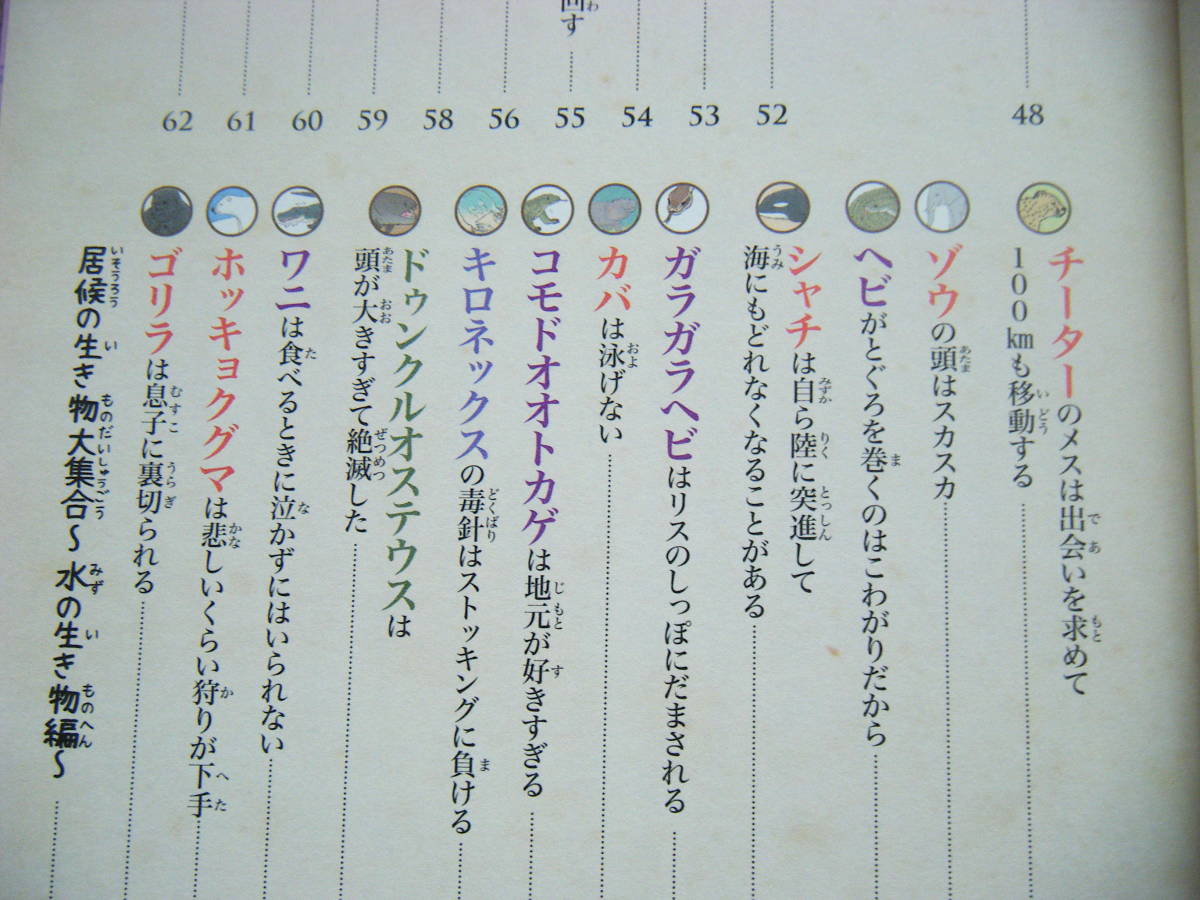 回す
48
52
53
54
55
56
58
59
60
61
62
チーターのメスは出会いを求めて
100kmも移動する
ゾウの頭はスカスカ
ヘビがとぐろを巻くのはこわがりだから
シャチは自ら陸に突進して
海にもどれなくなることがある
ガラガラヘビはリスのしっぽにだまされる
カバは泳げない
コモドオオトカゲは地元が好きすぎる
キロネックスの毒針はストッキングに負ける
ドゥンクルオステウスは
頭が大きすぎて絶滅した
ワニは食べるときに泣かずにはいられない
ホッキョクグマは悲しいくらい狩りが下手
ゴリラは息子に裏切られる
居候の生き物大集合〜水の生き物編〜